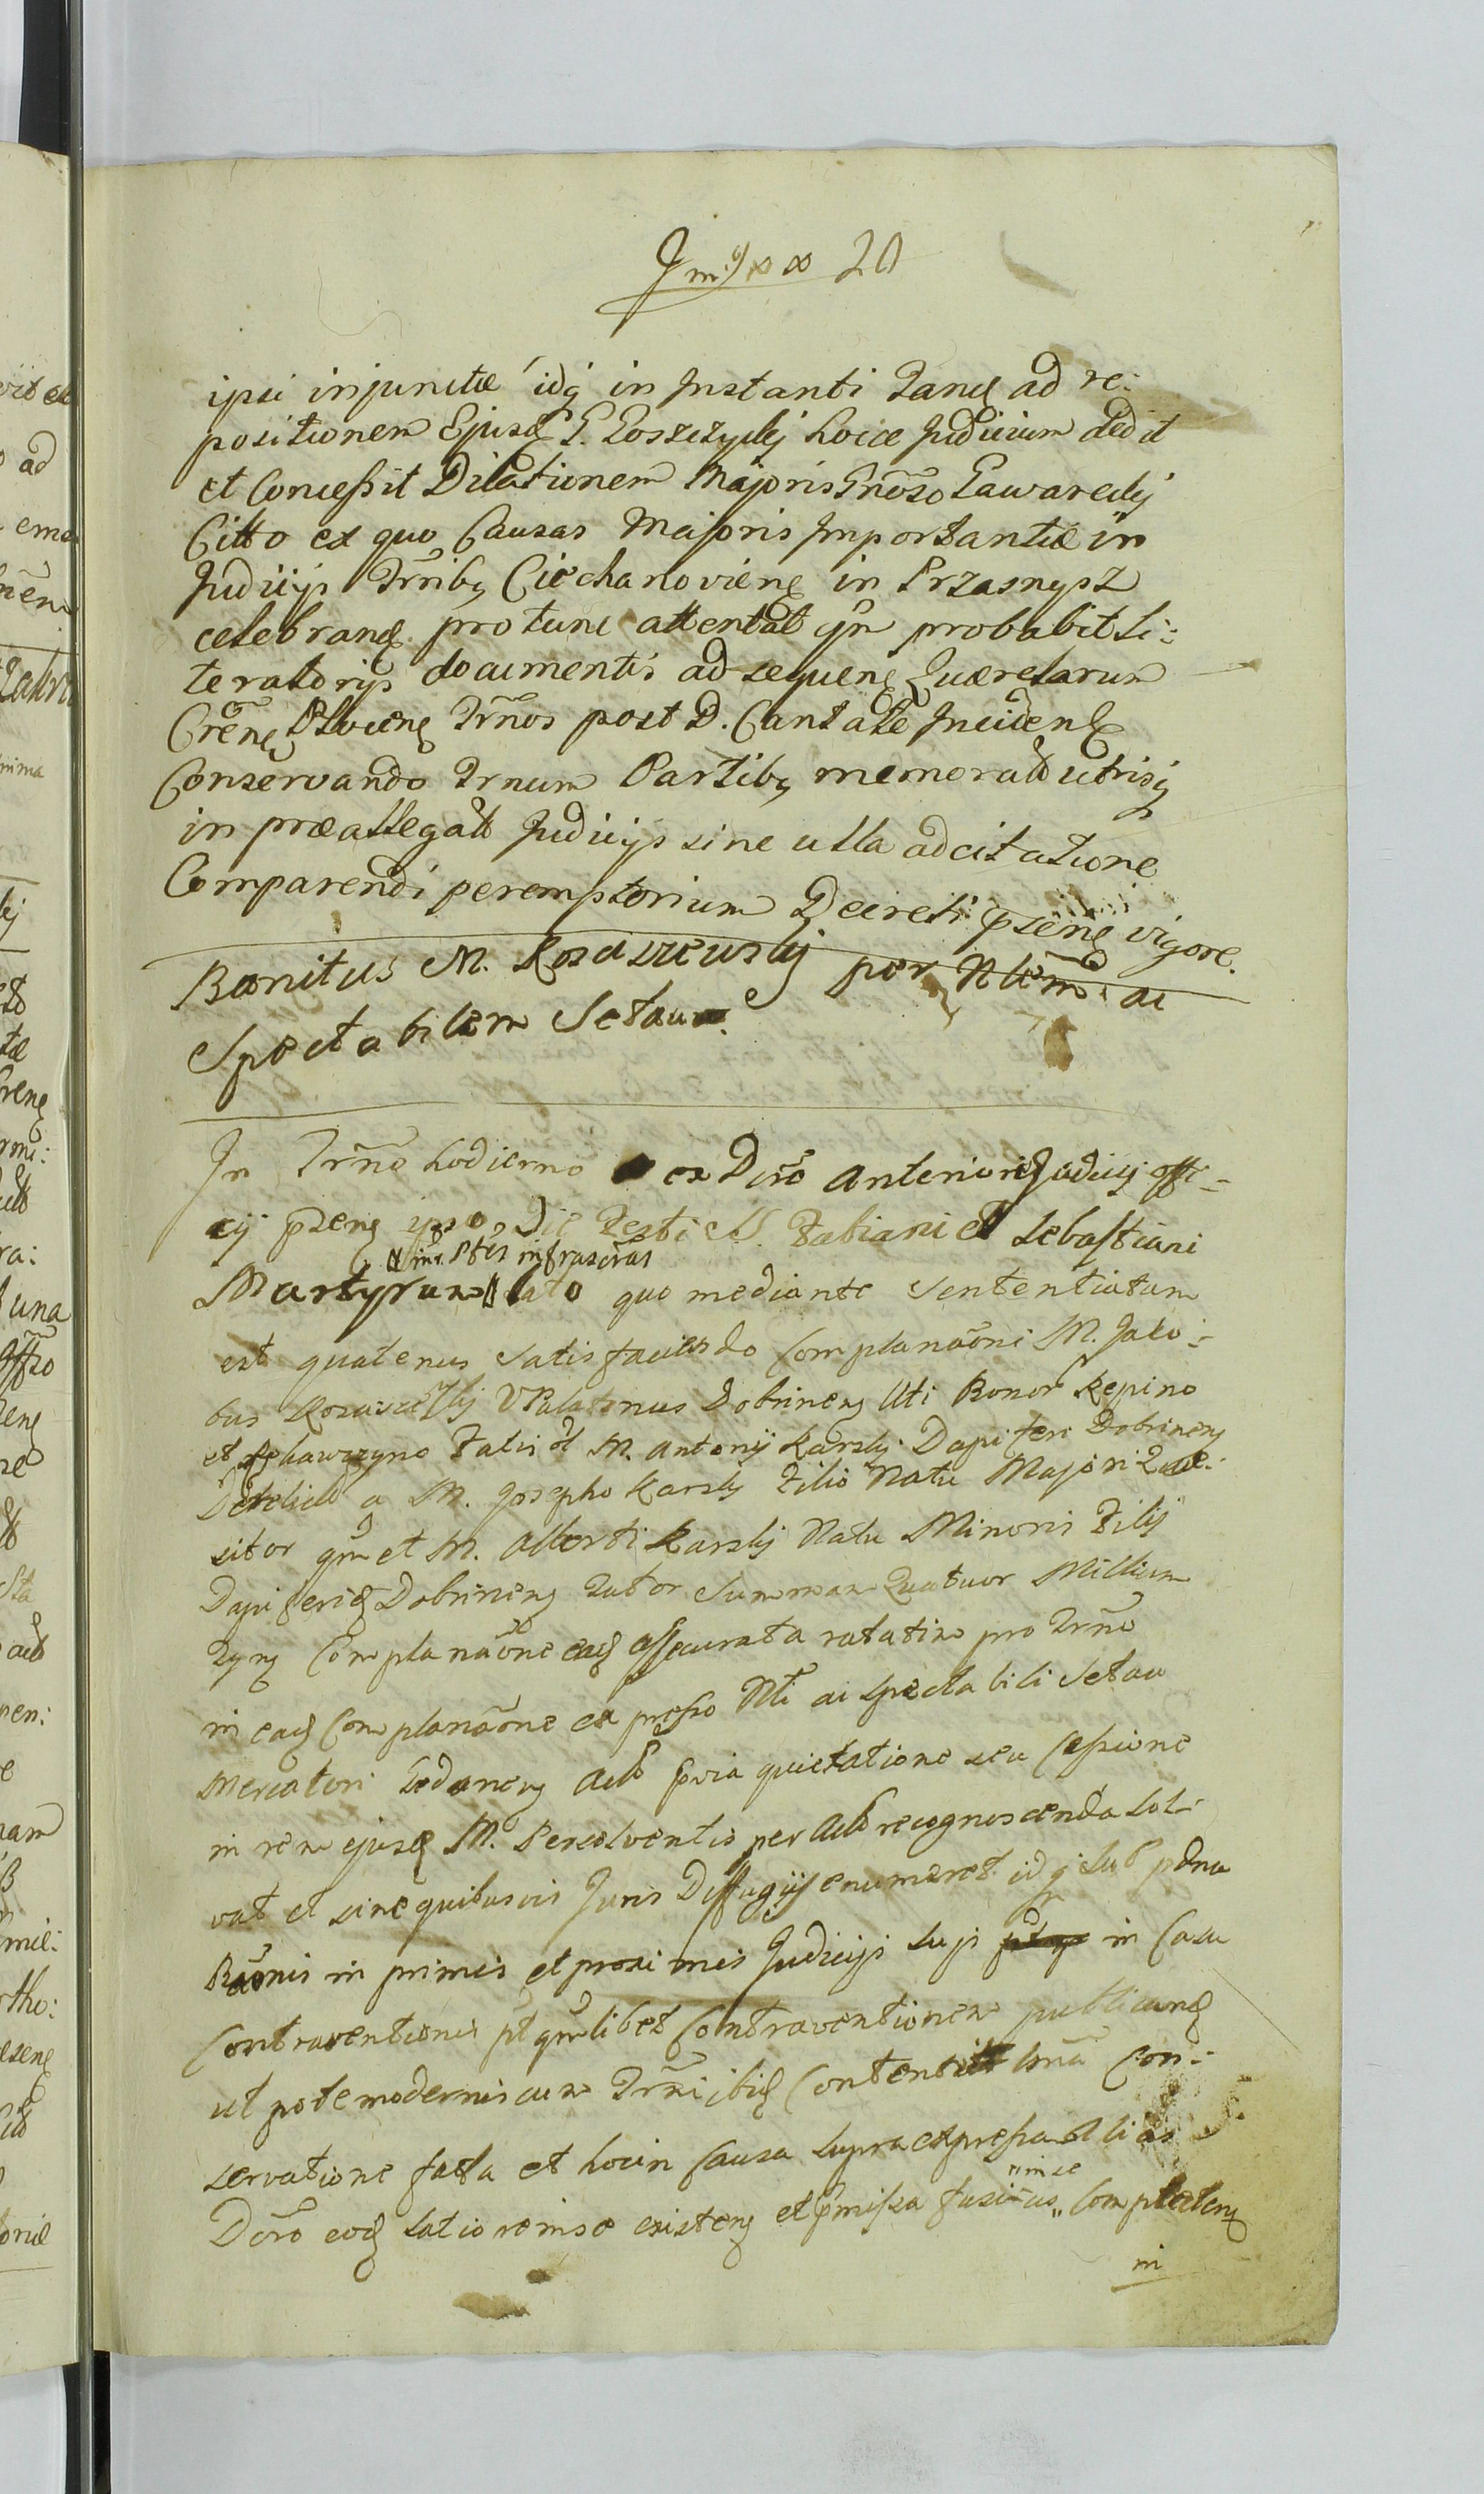 20
ipsi injunctæ idq in Instanti Tanq ad re:
positionem Ejusq G. Loszczyckj hoice Judicium dedit
et Concessit Dilationem Majoris Gnoso Gawareckj
Citto ex quo Causas Majoris Importantiæ in
Judicijs Trnibq Ciechanovienq in Przasnysz
celebranq pro tunc attentat qm probabit Li:
teratorijs documentis ad sequenq Quærelarum
Crenq Trnos post D. Cantate Incidenq
Conservando Trnum Partibq memorat utrisq
in præallegatt Judicijs sine ulla adcitatione
Comparendi peremptorium Decreti psenq vigore.
Banitus M. per Nlem ac
Spectabilem Setau
In Trno hodierno ex Dcro anteriori Judicij offi-
cij psenq ipso Die Festi S. Fabiani et Sebastiani
inr. Ptes infrascras
Martyrum lato quo mediante Sententiatum
est quatenus Satisfaciendo Complanaoni M. Jaco:
bus VPalatinus Dobrinenq Uti Bonor Kepino
et M. Antonij Karskj Dapiferi Dobrinenq
Derelict a M. Josepho Karskj Filio Natu Majori Quæ:
sitor qm et M. Alberti Karskj Natu Minoris Filij
Dapiferiq Dobrinenq Tutor Summam Quatuor Millium
Tynq Complanaone eaq assecurata ratatim pro Trno
in eaq Complanaone expresso Nli ac Spectabili Setau
Mercatori Gedanenq Actt pvia quietatione seu Cessione
in rem ejusq M. Persolventis per Actt recognoscenda Sol-
vat et sine quibusvis Juris Diffugijs enumeret idq sub pæna
Baonis in primis et proximis Judicijs Lujs in Casu
Contraventionis pt qmlibet Contraventionem publicanq
utpote modernis cum Trni ibiq Contentis Con:
servatione fatta et hocin Causa supra expressa alias
rimse
Dcro eoq latio remse existenq et pmissa fusius Complectenq
in